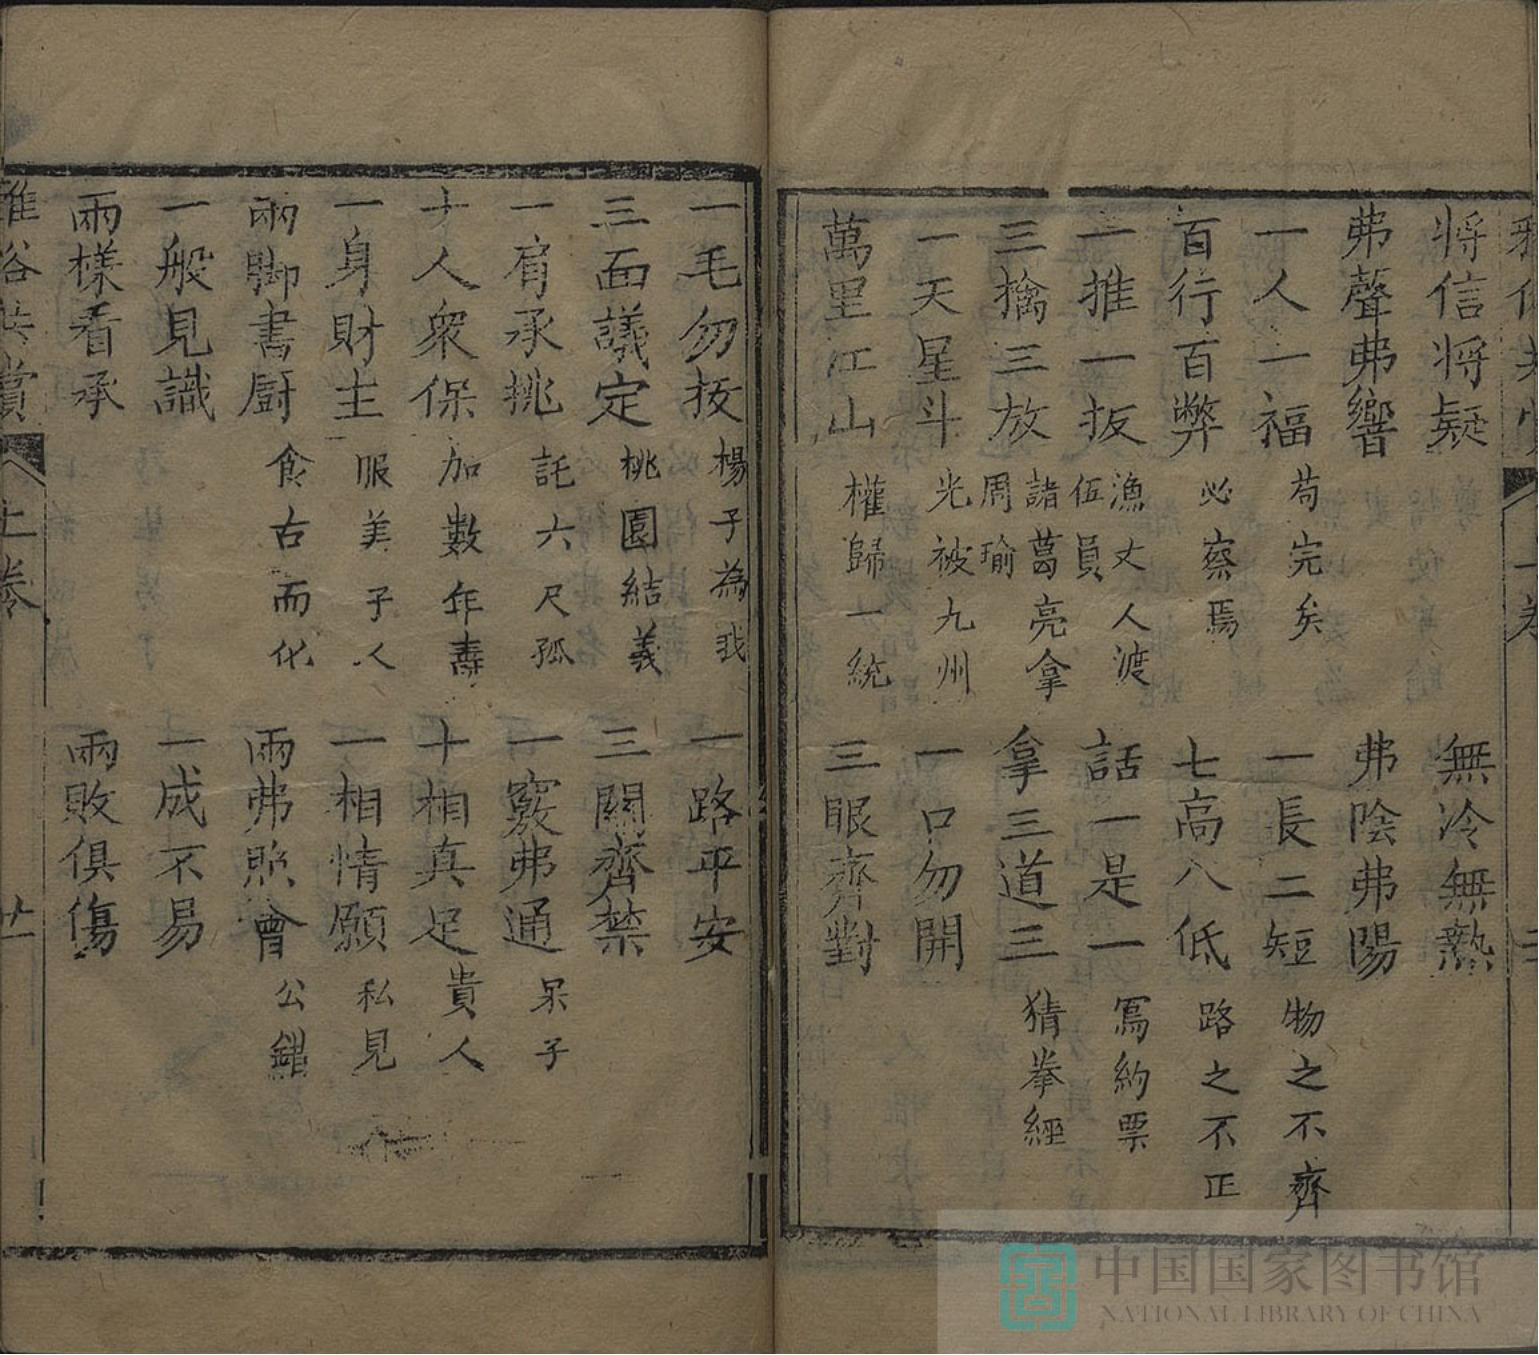 將信將疑 無冷無熱
弗聲弗響 弗陰弗陽
一人一福 苟完矣 一長二短 物之不齊
百行百弊 必察焉 七高八低 路之不正
一推一扳 漁丈人渡伍員 話一是一 寫約票
三擒三放 諸葛亮拿周瑜 拿三道三 猜拳經
一天星斗 光被九州 一口勿開
萬里江山 權歸一統 三眼齊對
一毛勿拔 楊子為我 一路平安
三面議定 桃園結義 三關齊禁
一肩承挑 託六尺孤 一竅弗通 呆子
十人眾保 加數年壽 十相真足 貴人
一身財主 服美子人 一相情願 私見
兩脚書厨 食古而化 兩弗照會 公錯
一般見識 一成不易
兩樣看承 兩敗俱傷
雅俗共賞 上卷 廿一
中国国家图书馆
NATIONAL LIBRARY OF CHINA